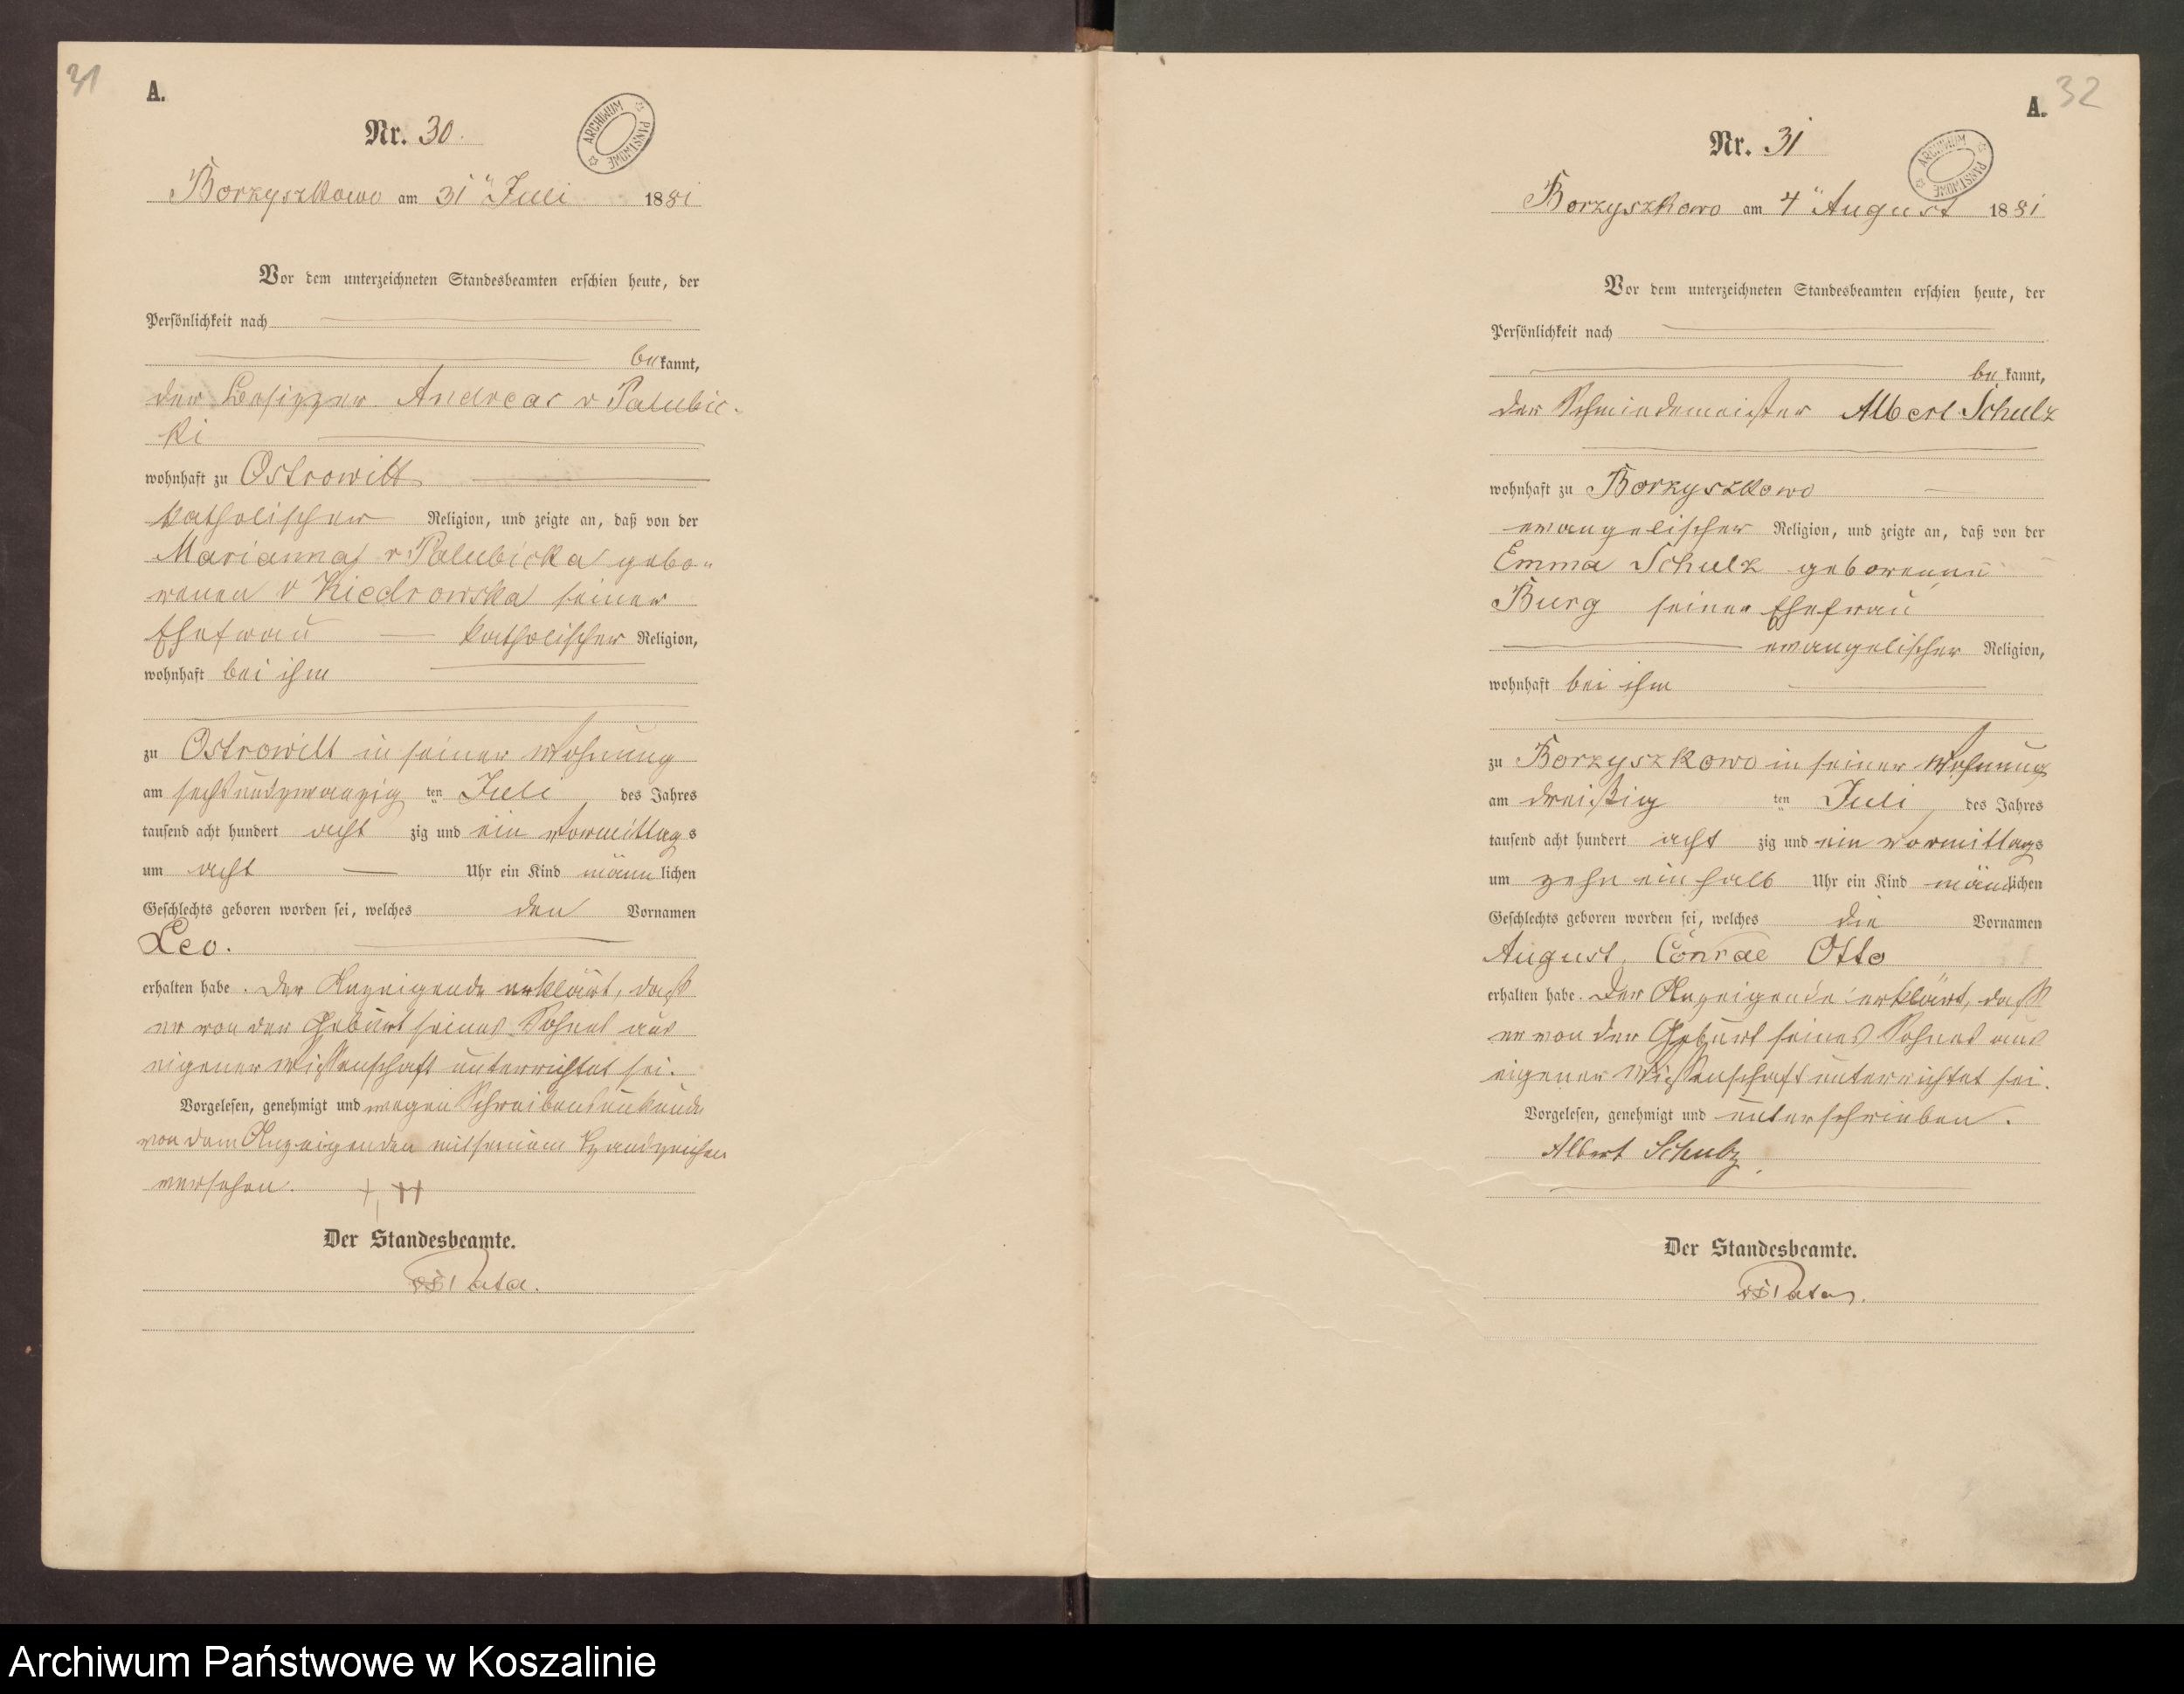 31
A.
Nr. 30.
ARCHIWUM PAŃSTWOWE
Borzyszkowo am 31" Juli 1881
Vor dem unterzeichneten Standesbeamten erschien heute, der
Persönlichkeit nach
be kannt,
der Besitzer Andreas v Palubic-
ki
wohnhaft zu Ostrowitt
katholischer Religion, und zeigte an, daß von der
Marianna v Palubicka gebo-
renen v Kiedrowska seiner
Ehefrau katholischer Religion,
wohnhaft bei ihm
zu Ostrowitt in seiner Wohnung
am sechsundzwanzig ten Juli des Jahres
tausend acht hundert acht zig und ein vormittags
um acht Uhr ein Kind männ lichen
Geschlechts geboren worden sei, welches den Vornamen
Leo.
erhalten habe. Der Anzeigende erklärt, daß
er von der Geburt seines Sohnes aus
eigener Wissenschaft unterrichtet sei.
Vorgelesen, genehmigt und wegen Schreibensunkunde
von dem Anzeigenden mit seinem Handzeichen
versehen. + ++
Der Standesbeamte.
32
A.
Nr. 31
ARCHIWUM PAŃSTWOWE
Borzyszkowo am 4" August 1881
Vor dem unterzeichneten Standesbeamten erschien heute, der
Persönlichkeit nach
be kannt,
der Schmiedemeister Albert Schulz
wohnhaft zu Borzyszkowo
evangelischer Religion, und zeigte an, daß von der
Emma Schulz geborenen
Burg seiner Ehefrau
evangelischer Religion,
wohnhaft bei ihm
zu Borzyszkowo in seiner Wohnung
am dreißig ten Juli des Jahres
tausend acht hundert acht zig und ein vormittags
um zehn ein halb Uhr ein Kind männlichen
Geschlechts geboren worden sei, welches die Vornamen
August, Conrad Otto
erhalten habe. Der Anzeigende erklärt, daß
er von der Geburt seines Sohnes aus
eigener Wissenschaft unterrichtet sei.
Vorgelesen, genehmigt und unterschrieben.
Albert Schulz
Der Standesbeamte.
Archiwum Państwowe w Koszalinie